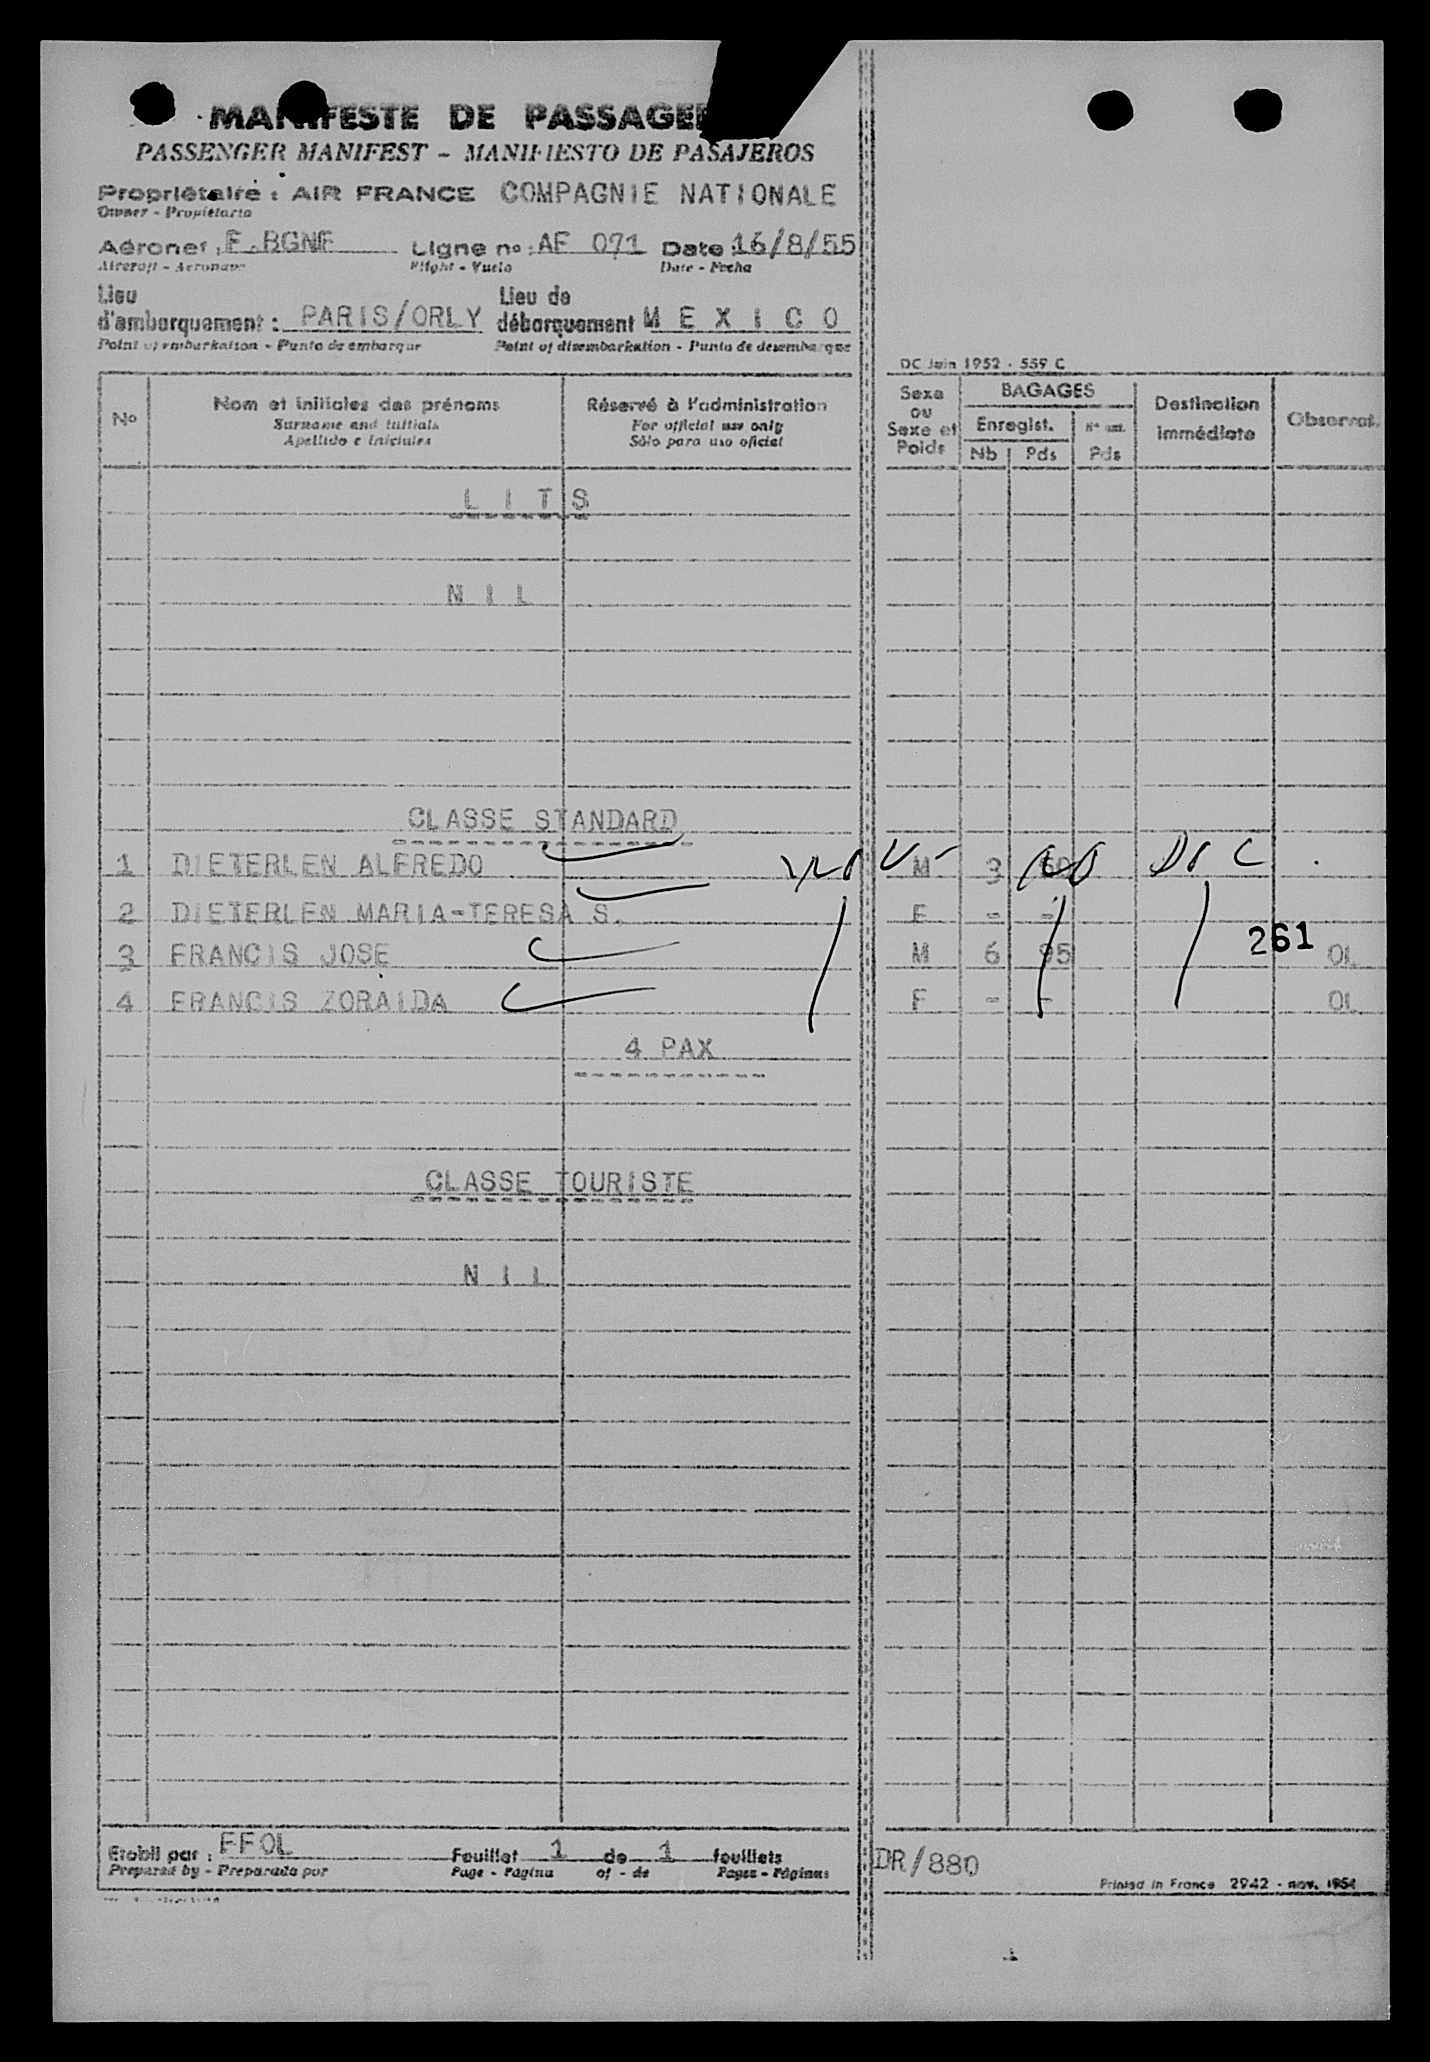 MANIFESTE DE PASSAGE
PASSENGER MANIFEST - MANIFIESTO DE PASAJEROS
Propriétaire : AIR FRANCE COMPAGNIE NATIONALE
Owner - Propietario
Aéronef : F.BGNF Ligne no : AF 071 Date 16/8/55
Aircraft - Aeronave Flight - Vuelo Date - Fecha
Lieu d'embarquement : PARIS/ORLY Lieu de débarquement M E X I C O
Point of embarkation - Punto de embarque Point of disembarkation - Punto de desembarque
DC Juin 1952 - 559 C
No Nom et initiales des prénoms Réservé à l'administration Sexe ou Sexe et Poids BAGAGES Destination immédiate Observat.
Surname and initials For official use only Enregist.
Apellido e iniciales Sólo para uso oficial Nb Pds Pds
L I T S
N I L
CLASSE STANDARD
1 DIETERLEN ALFREDO M 3
2 DIETERLEN MARIA-TERESA S. F - -
3 FRANCIS JOSE M 6 95 261 OL
4 FRANCIS ZORAIDA F - - OL
4 PAX
CLASSE TOURISTE
N I L
Etabli par : FFOL Feuillet 1 de 1 feuillets DR/880
Prepared by - Preparado por Page - Página of - de Pages - Páginas
Printed in France 2942 - nov. 1954